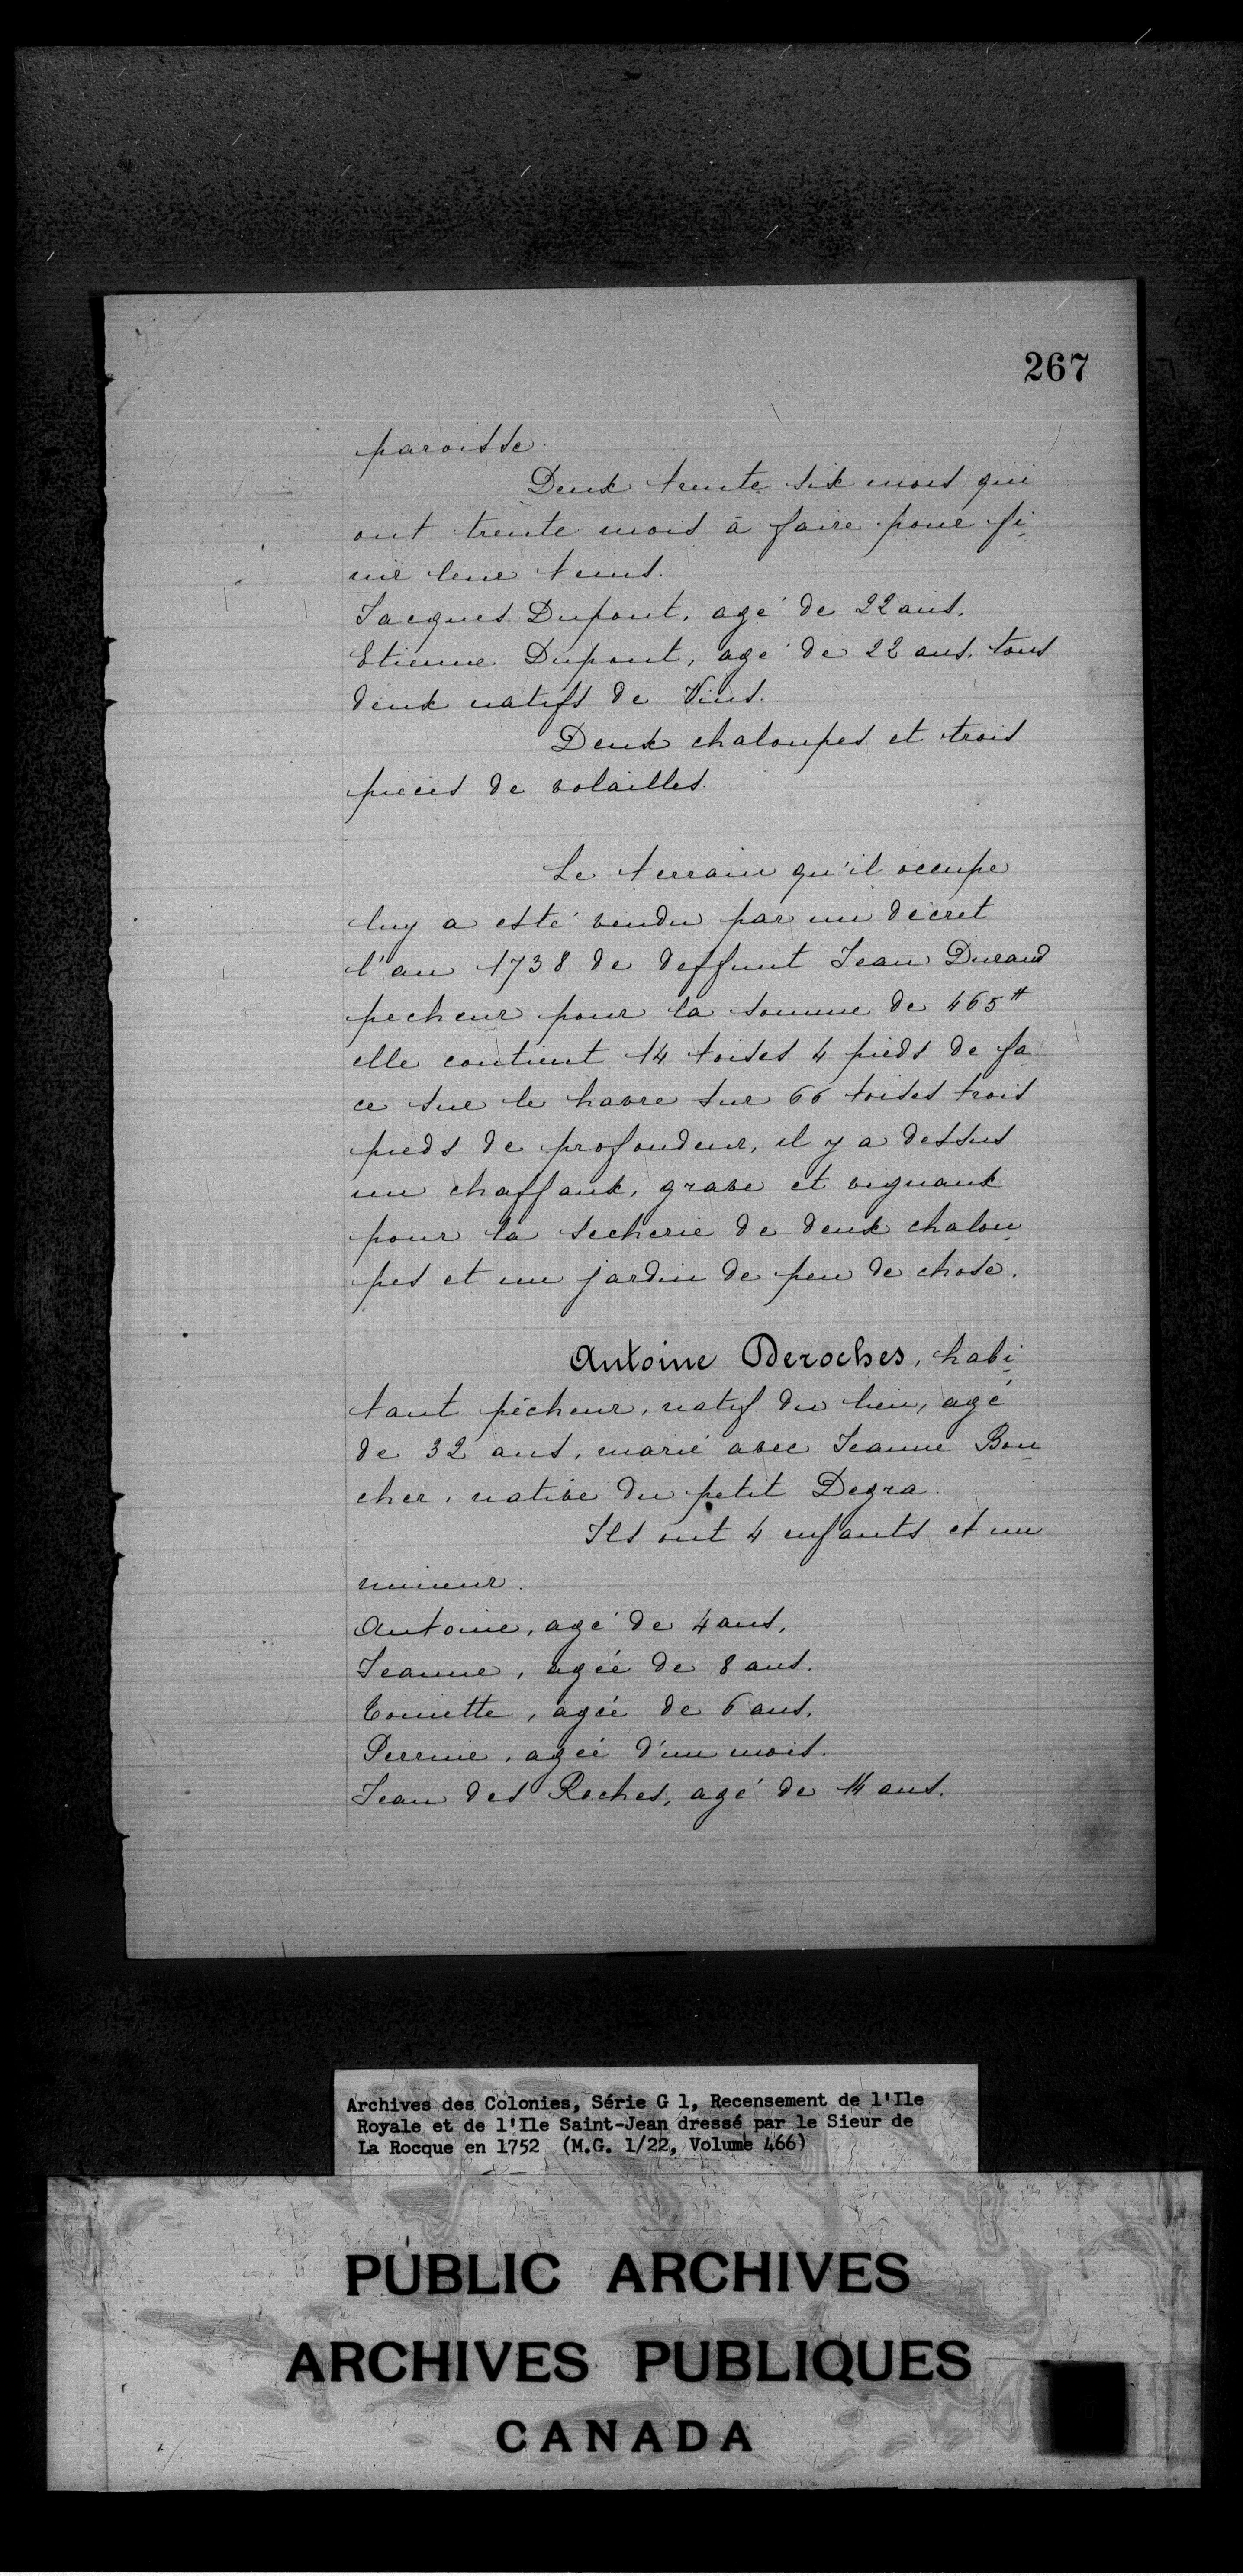 267
paroisse.
Deux trente six mois qui
ont trente mois à faire pour fi-
nir leur tems.
Jacques Dupont, agé de 22 ans.
Etienne Dupont, agé de 22 ans, tous
deux natifs de Vins.
Deux chaloupes et trois
pièces de volailles.
Le terrain qu'il occupe
luy a esté vendu par un décret
l'an 1738 de deffunt Jean Durand
pecheur pour la somme de 465#
elle contient 14 toises 4 pieds de fa-
ce sur le havre sur 66 toises trois
pieds de profondeur, il y a dessus
un chaffaux, grave et vignaux
pour la secherie de deux chalou-
pes et un jardin de peu de chose.
Antoine Deroches, habi-
tant pêcheur, natif du lieu, agé
de 32 ans, marié avec Jeanne Bou-
cher, native du petit Degra.
Ils ont 4 enfants et un
mineur.
Antoine, agé de 4 ans,
Jeanne, agée de 8 ans.
Toinette, agée de 6 ans,
Perrine, agée d'un mois.
Jean des Roches, agé de 14 ans.
Archives des Colonies, Série G 1, Recensement de l'Ile
Royale et de l'Ile Saint-Jean dressé par le Sieur de
La Rocque en 1752 (M.G. 1/22, Volume 466)
PUBLIC ARCHIVES
ARCHIVES PUBLIQUES
CANADA